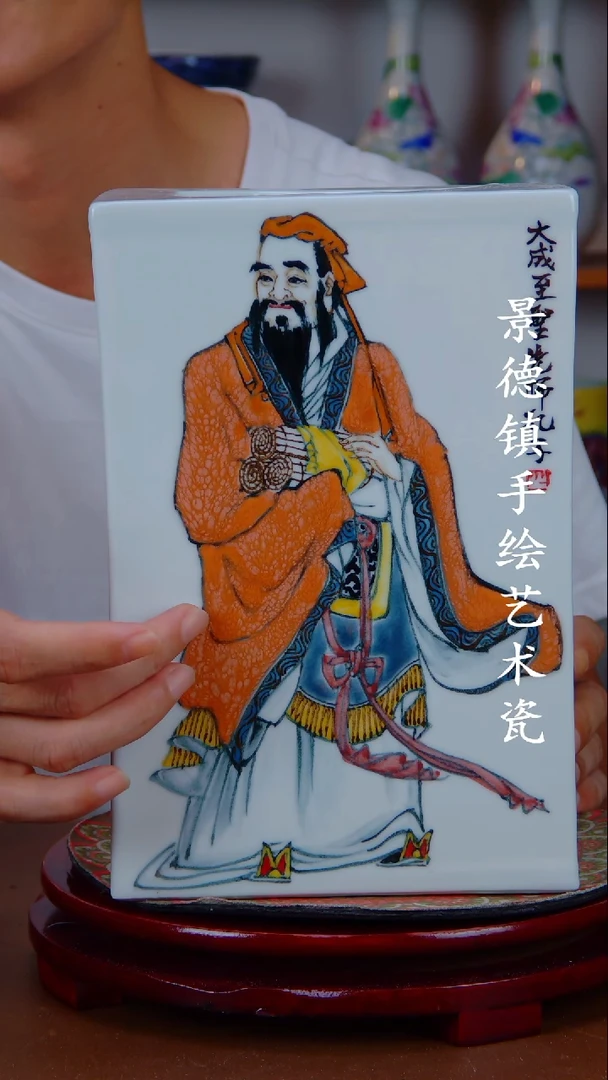 大成至圣先师孔子
景德镇手绘艺术瓷